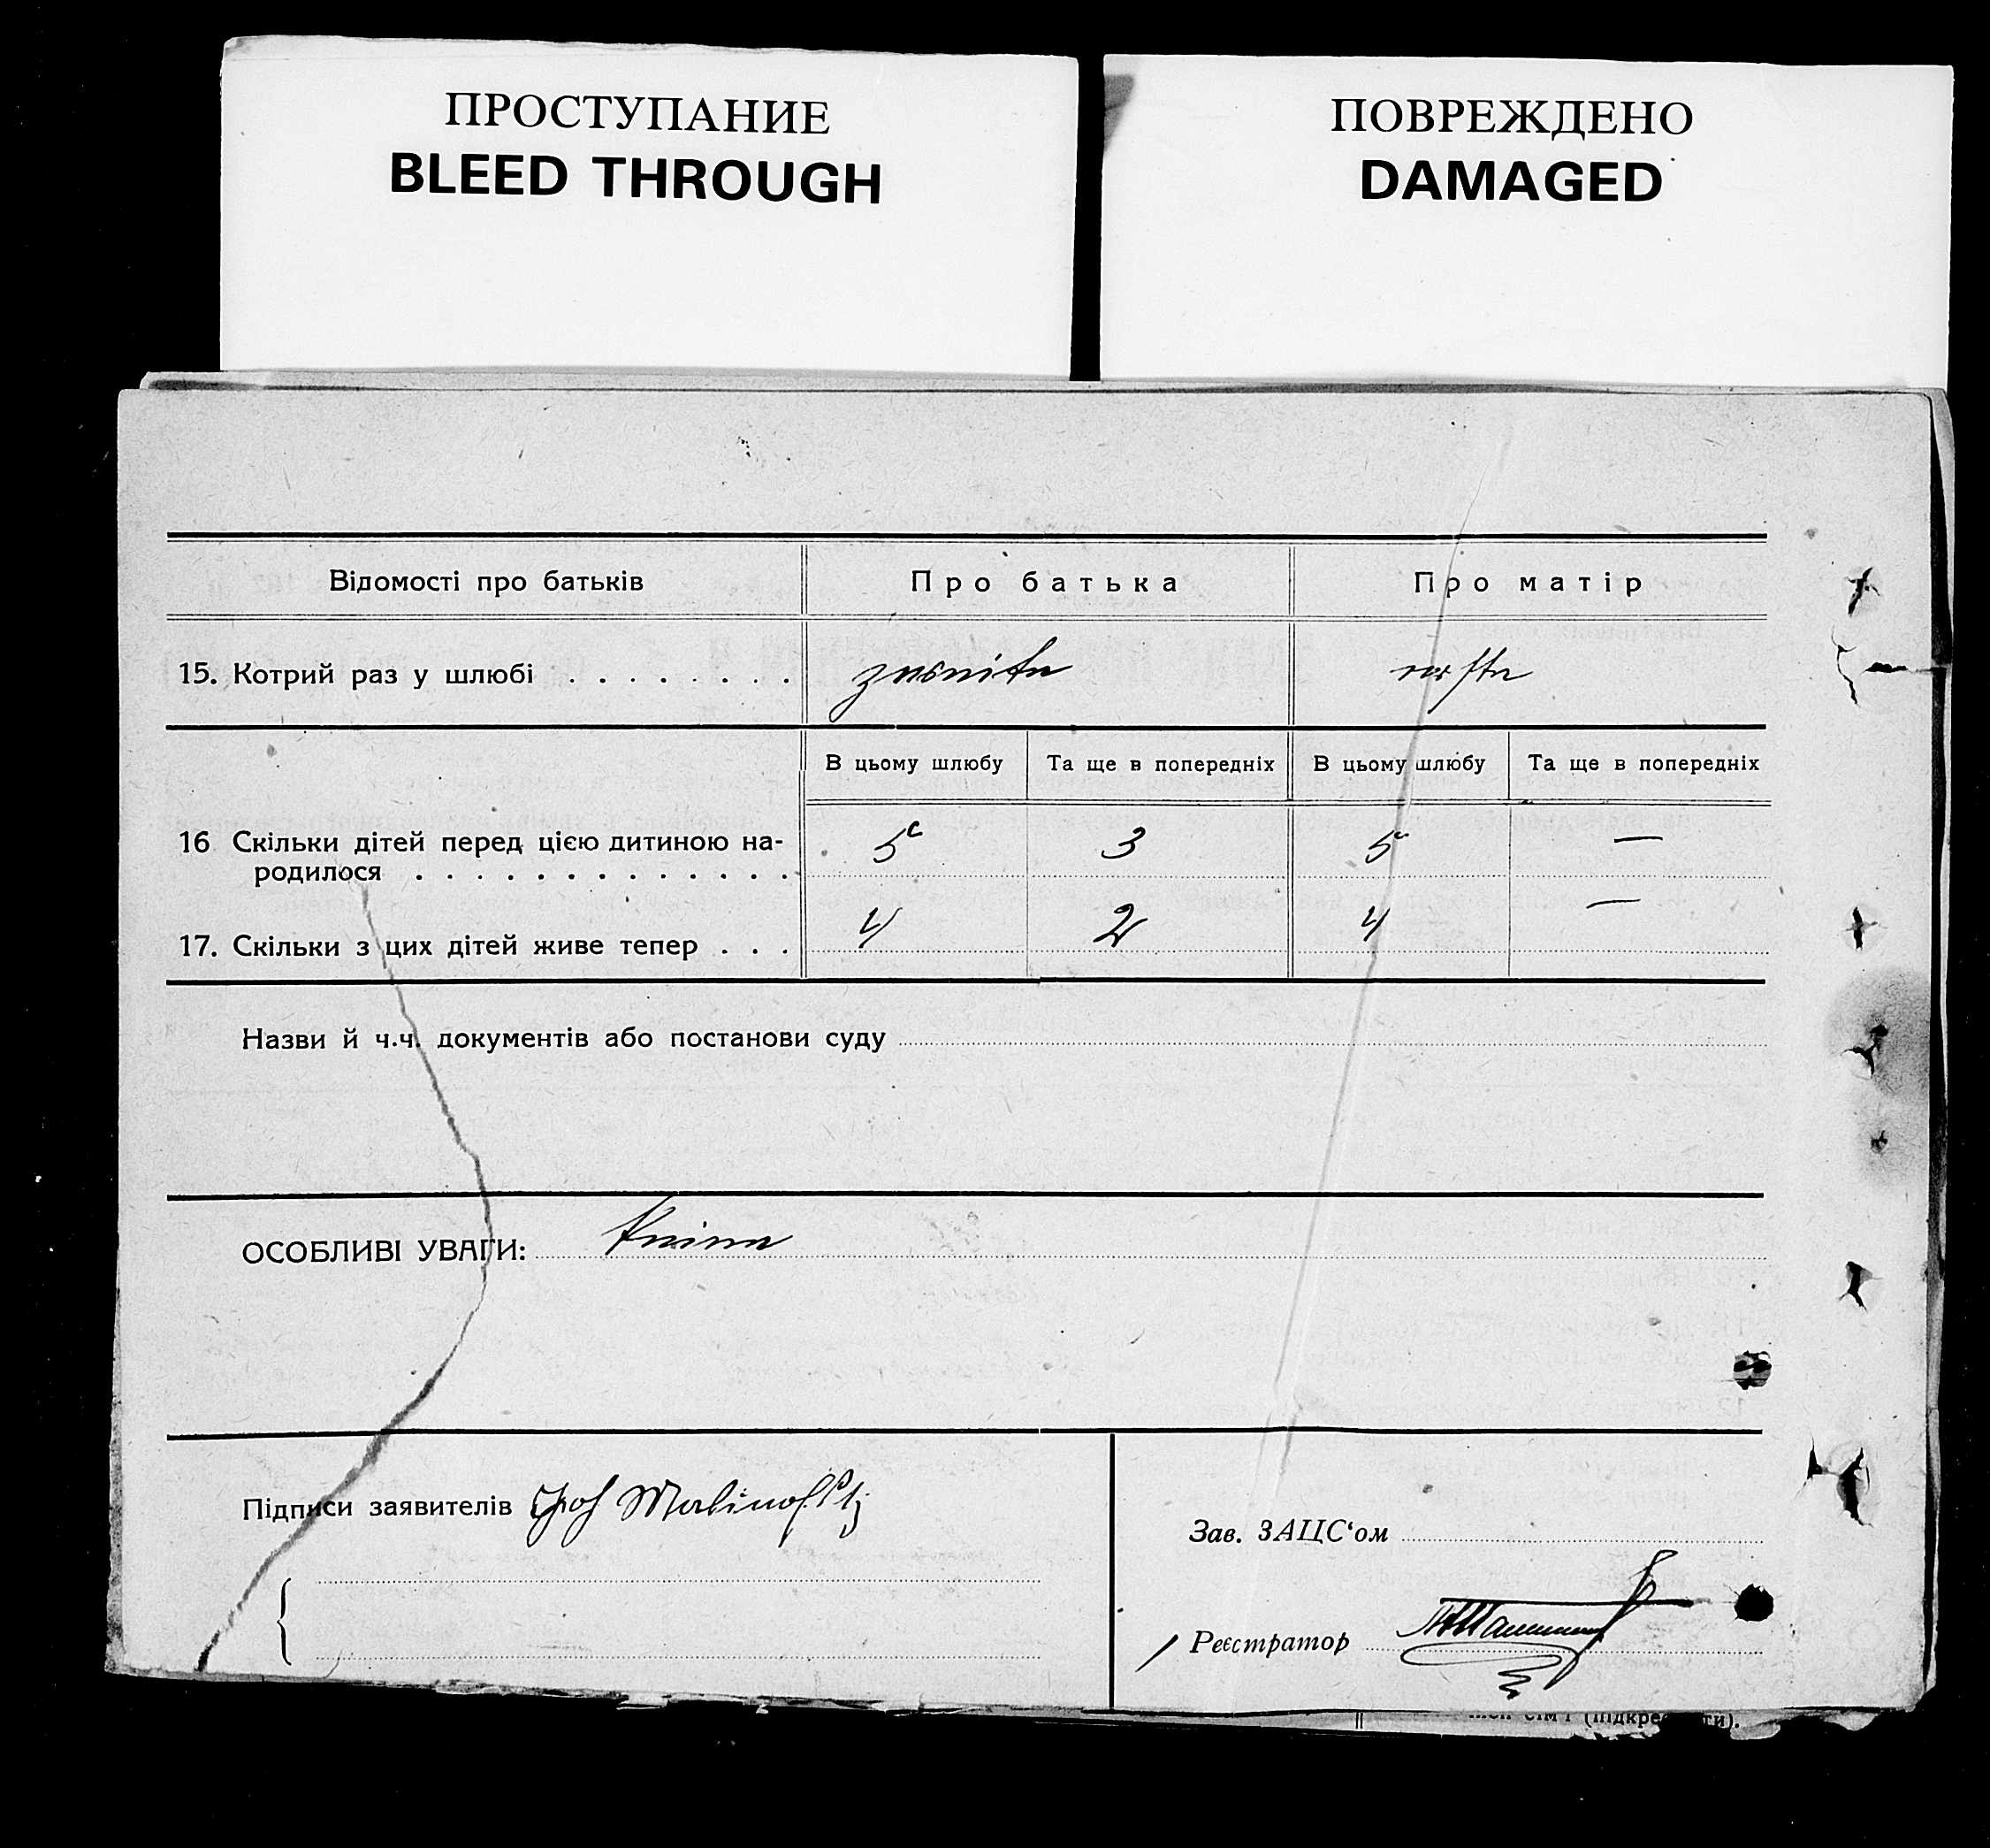 ПРОСТУПАНИЕ
BLEED THROUGH
ПОВРЕЖДЕНО
DAMAGED
Відомості про батьків Про батька Про матір
15. Котрий раз у шлюбі . . . . . . . .
В цьому шлюбу Та ще в попередніх В цьому шлюбу Та ще в попередніх
16 Скільки дітей перед цією дитиною на- 5 3 5 —
родилося . . . . . . . . . . . . .
17. Скільки з цих дітей живе тепер . . . 4 2 4 —
Назви й ч.ч. документів або постанови суду
ОСОБЛИВІ УВАГИ:
Підписи заявителів
Зав. ЗАЦС‘ом
Реєстратор
(підкре ти).